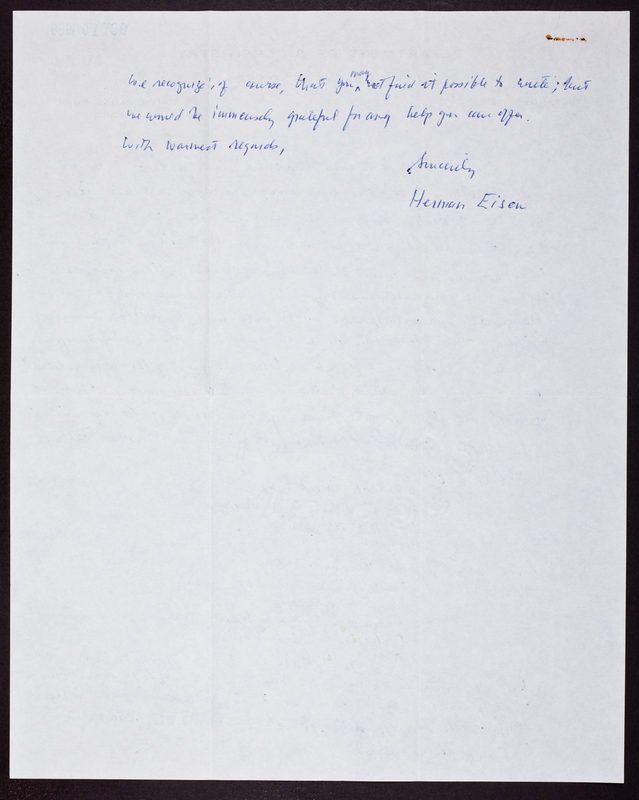 We recognize, of course, that you may not find it possible to write; but
we would be immensely grateful for any help you can offer.
With warmest regards,
Sincerely
Herman Eisen